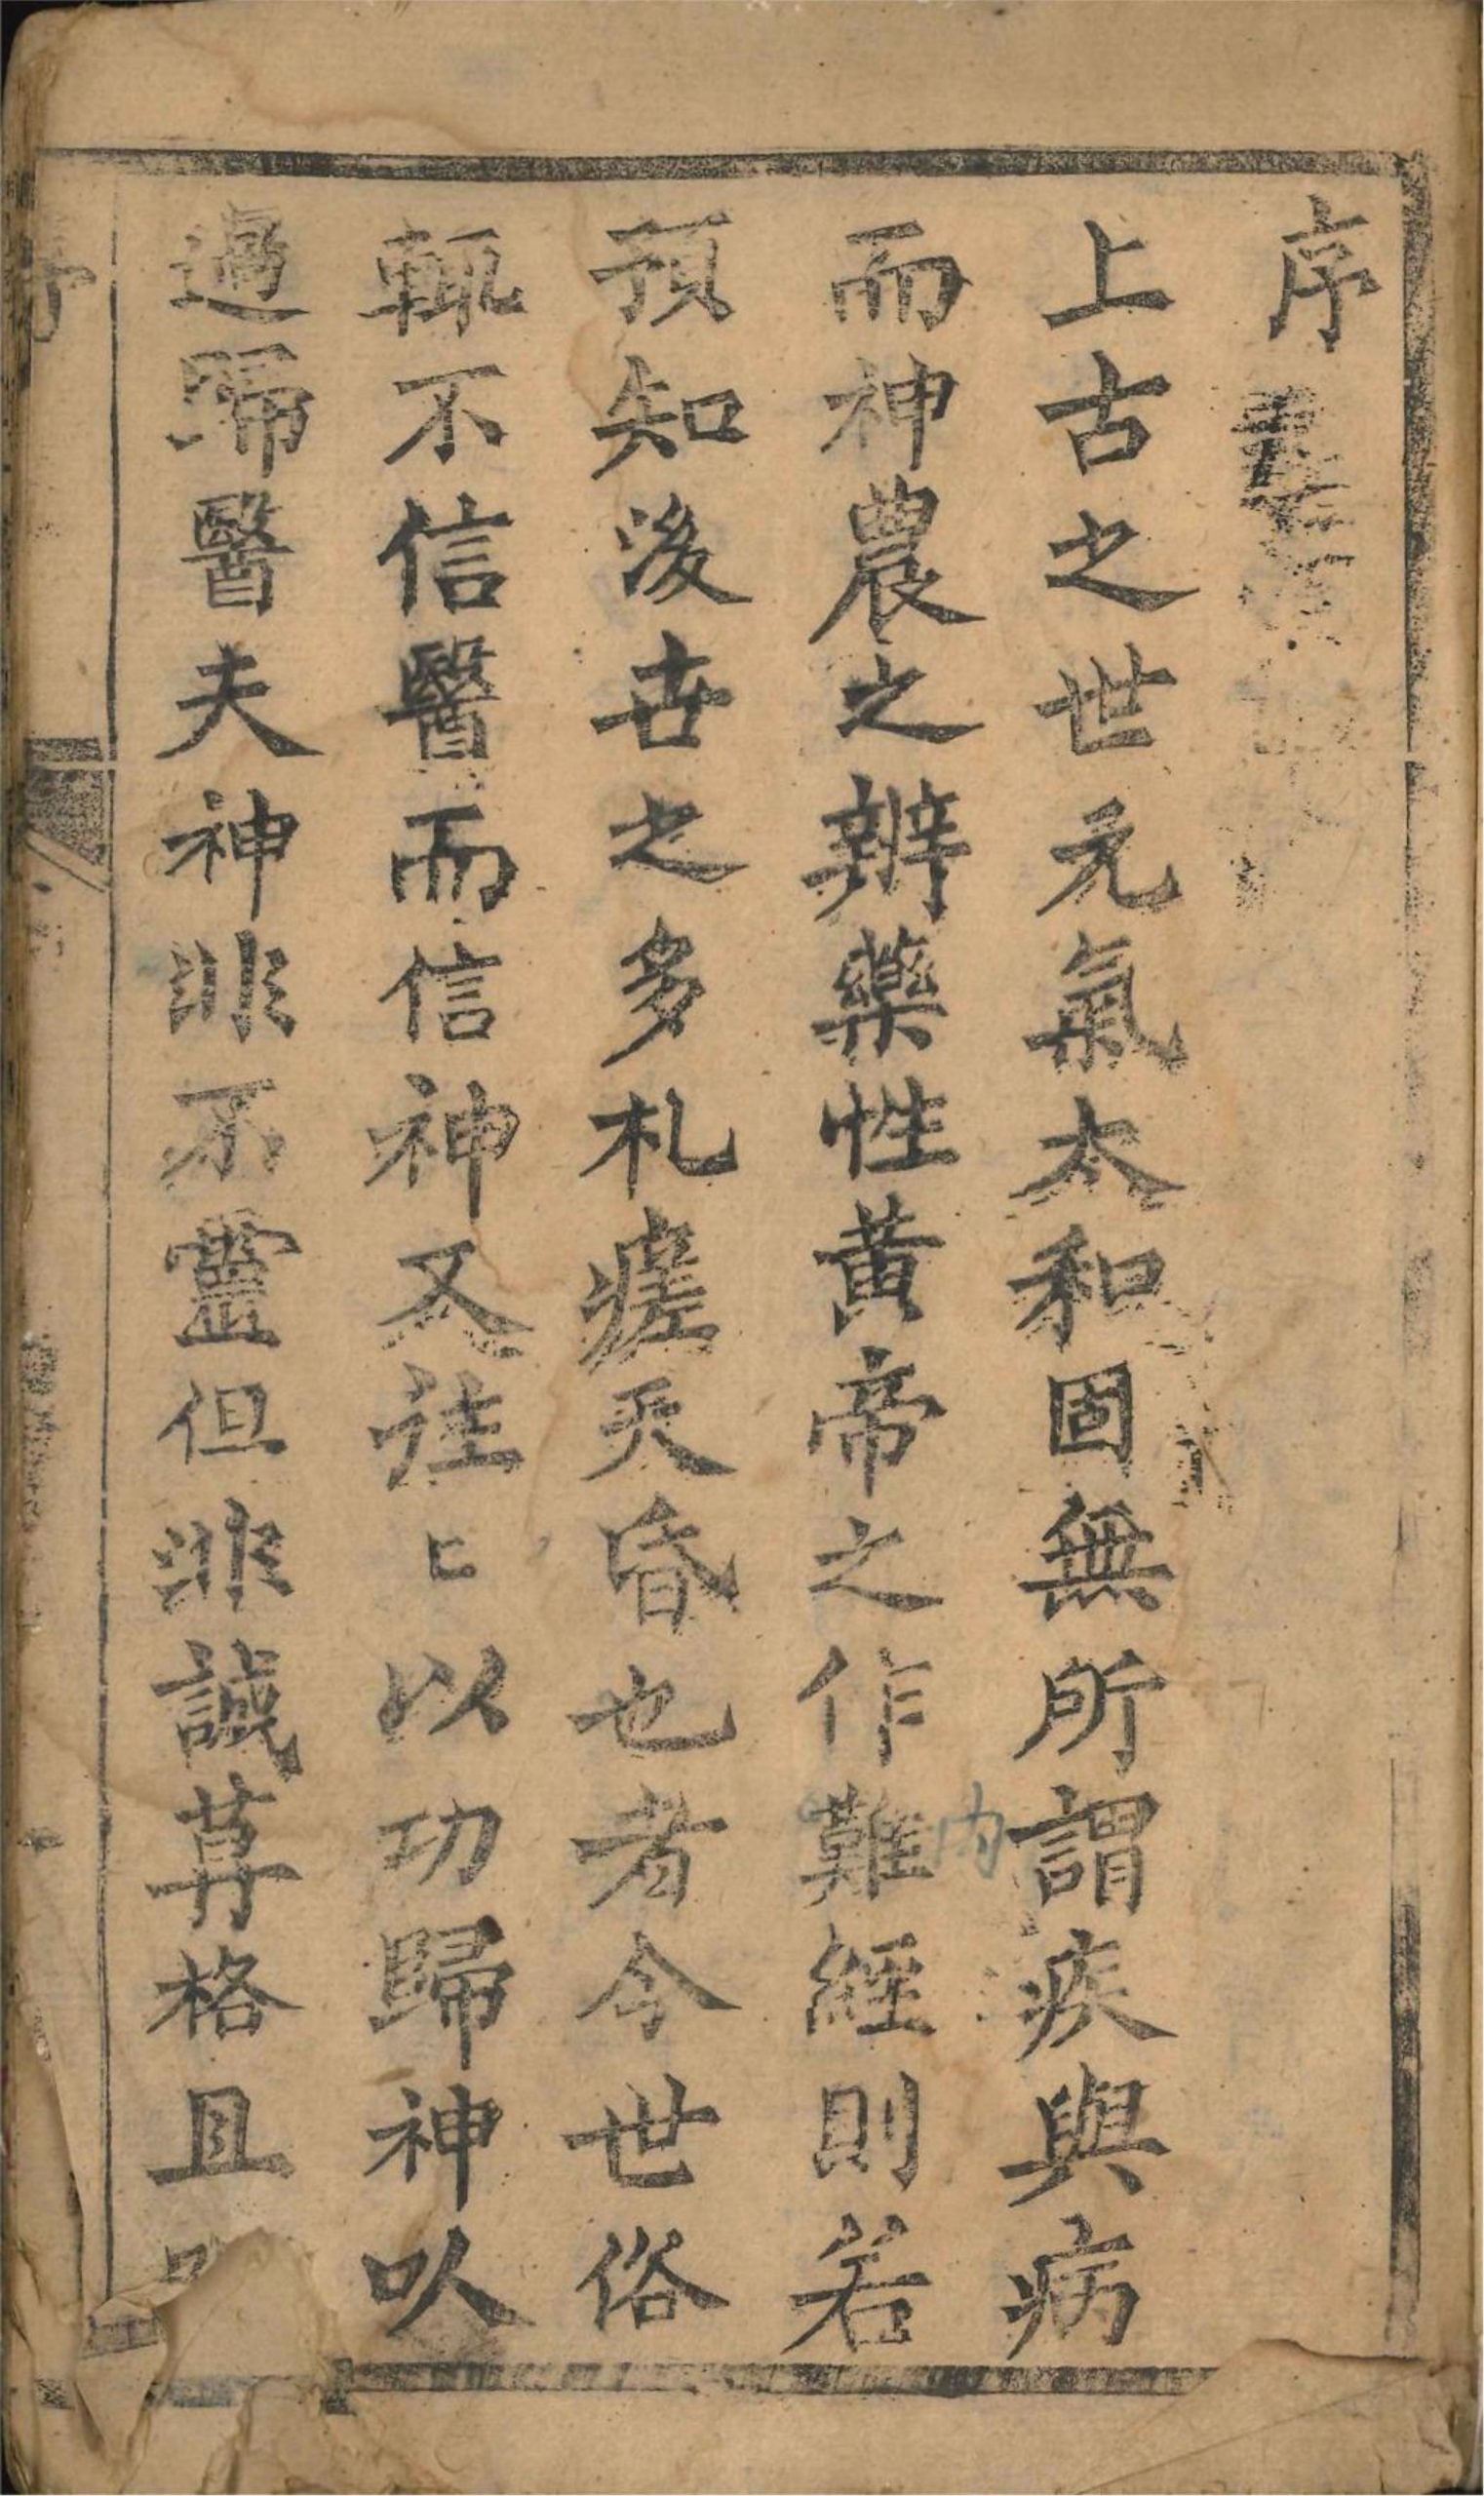 序
上古之世元氣太和固無所謂疾與病
而神農之辨藥性黃帝之作難經則若
內
預知後世之多札瘥夭昏也者今世俗
輒不信醫而信神又往〻以功歸神以
過歸醫夫神非不靈但非誠莫格且
序